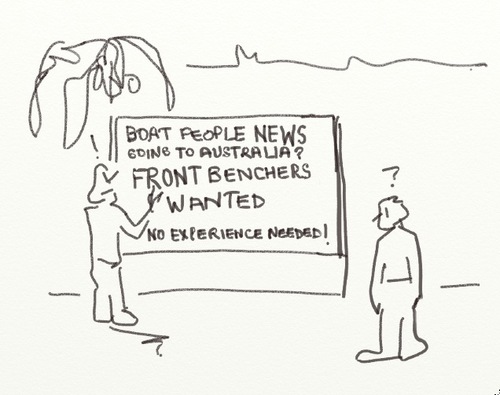 !
BOAT PEOPLE NEWS
GOING TO AUSTRALIA?
FRONT BENCHERS
WANTED
NO EXPERIENCE NEEDED!
?